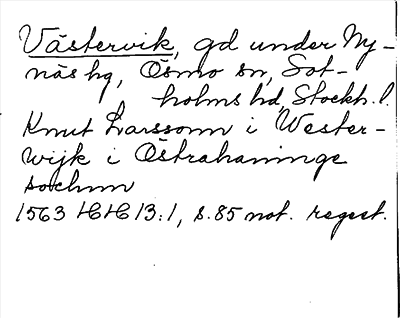 Västervik, gd under Ny-
näs hg, Ösmo sn, Sot-
holms hd, Stockh. l.
Knut Larssonn i Wester-
wijk i Östrahaninge
sochnn
1563 HH 13:1, s. 85 not. regest.